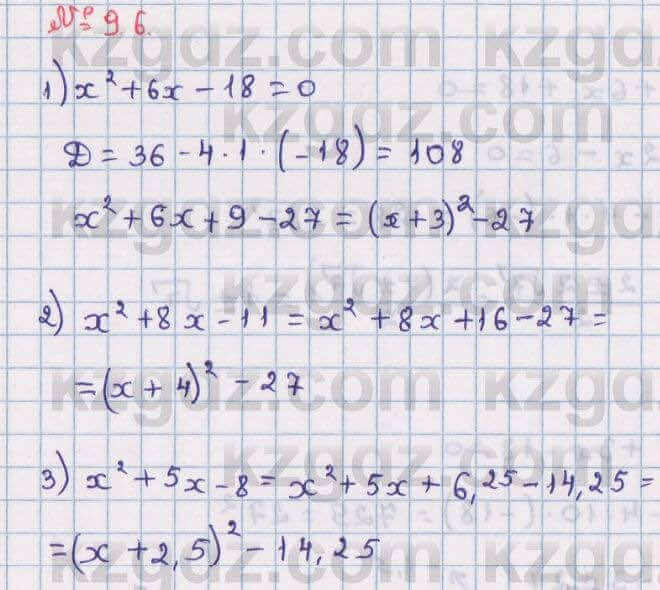 № 9.6.
1) x² + 6x − 18 = 0
D = 36 − 4 · 1 · (−18) = 108
x² + 6x + 9 − 27 = (x + 3)² − 27
2) x² + 8x − 11 = x² + 8x + 16 − 27 =
= (x + 4)² − 27
3) x² + 5x − 8 = x² + 5x + 6,25 − 14,25 =
= (x + 2,5)² − 14,25
kzgdz.com